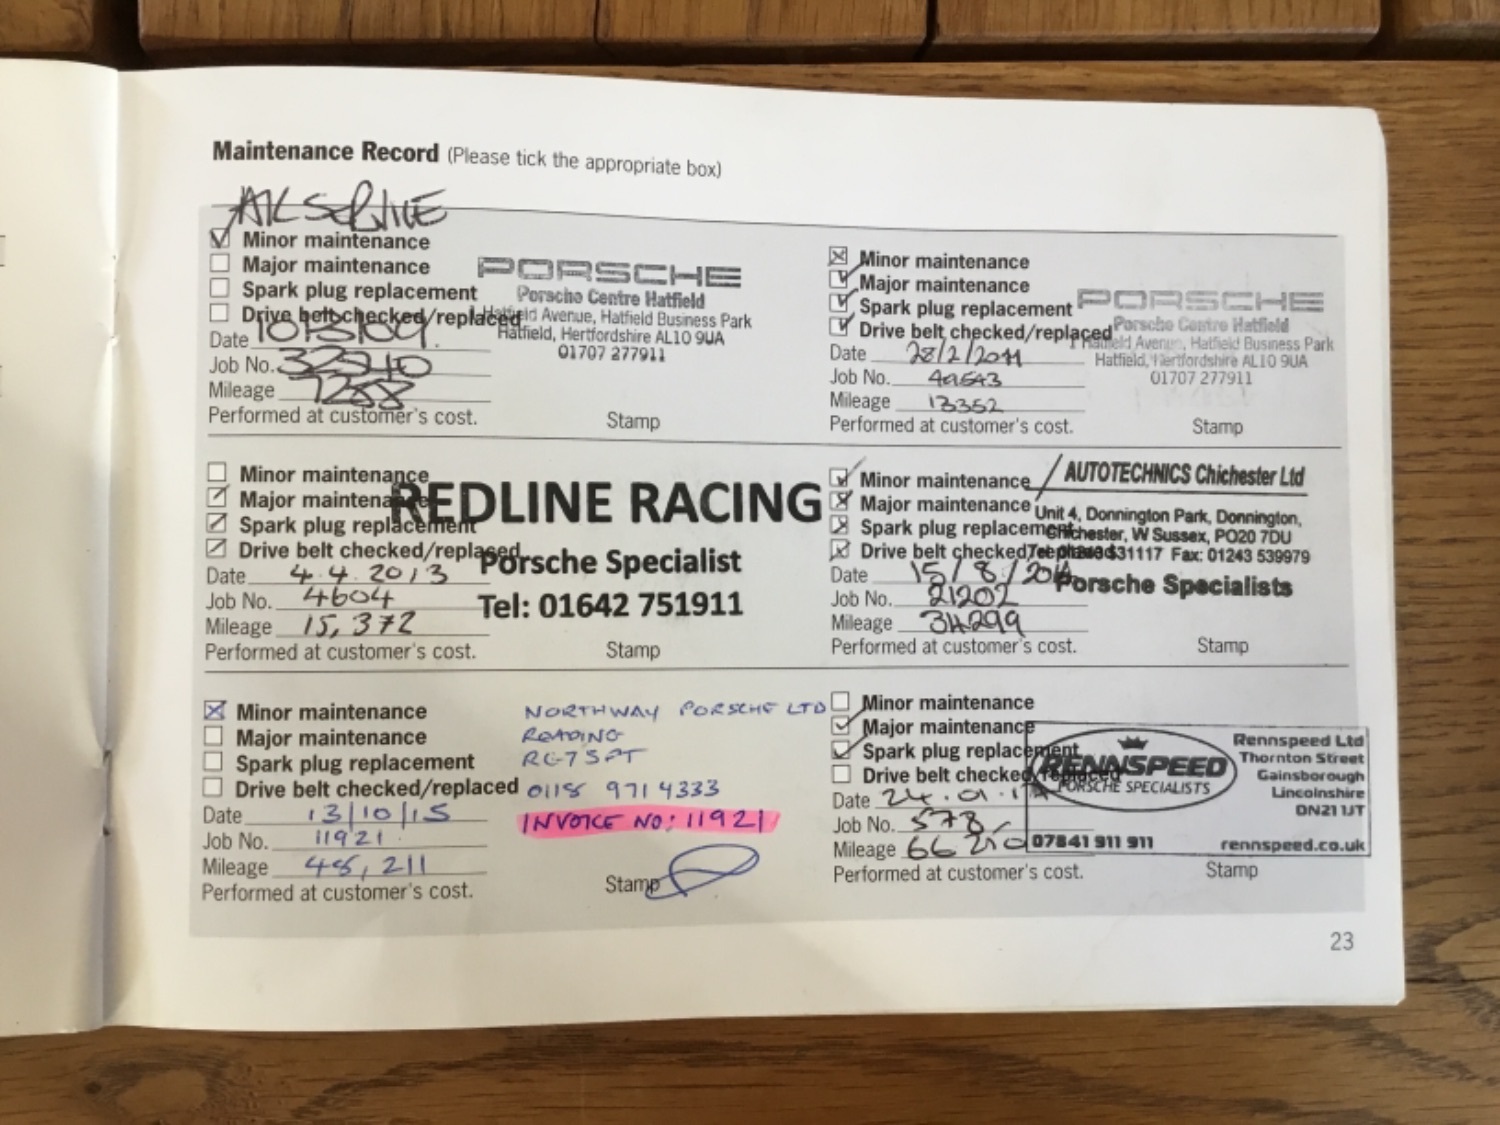 Maintenance Record (Please tick the appropriate box)
Minor maintenance
Major maintenance
Spark plug replacement
Drive belt checked/replaced
Date
Job No. 32340
Mileage 7288
Performed at customer's cost.
PORSCHE
Porsche Centre Hatfield
Hatfield Avenue, Hatfield Business Park
Hatfield, Hertfordshire AL10 9UA
01707 277911
Stamp
Minor maintenance
Major maintenance
Spark plug replacement
Drive belt checked/replaced
Date 28/2/2011
Job No.
Mileage 13352
Performed at customer's cost.
PORSCHE
Porsche Centre Hatfield
Hatfield Avenue, Hatfield Business Park
Hatfield, Hertfordshire AL10 9UA
01707 277911
Stamp
Minor maintenance
Major maintenance
Spark plug replacement
Drive belt checked/replaced
Date 4.4.2013
Job No. 4604
Mileage 15,372
Performed at customer's cost.
REDLINE RACING
Porsche Specialist
Tel: 01642 751911
Stamp
Minor maintenance
Major maintenance
Spark plug replacement
Drive belt checked/replaced
Date 15/8/2014
Job No. 21202
Mileage 34299
Performed at customer's cost.
AUTOTECHNICS Chichester Ltd
Unit 4, Donnington Park, Donnington,
Chichester, W Sussex, PO20 7DU
Fax: 01243 539979
Porsche Specialists
Stamp
Minor maintenance
Major maintenance
Spark plug replacement
Drive belt checked/replaced
Date 13/10/15
Job No. 11921
Mileage 48,211
Performed at customer's cost.
NORTHWAY PORSCHE LTD
READING
RG7 5PT
0118 971 4333
INVOICE NO: 11921
Stamp
Minor maintenance
Major maintenance
Spark plug replacement
Drive belt checked/replaced
Date
Job No. 578
Mileage 66 210
Performed at customer's cost.
RENNSPEED
PORSCHE SPECIALISTS
07841 911 911
Rennspeed Ltd
Thornton Street
Gainsborough
Lincolnshire
DN21 1JT
rennspeed.co.uk
Stamp
23